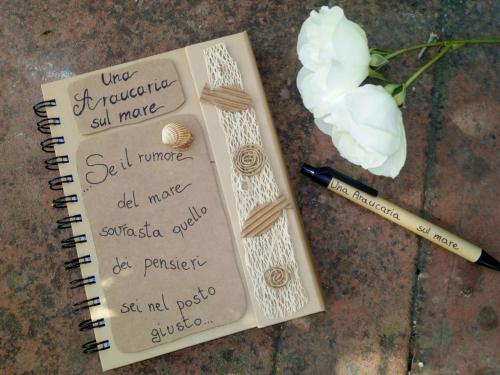 Una
Araucaria
sul mare
...Se il rumore
del mare
sovrasta quello
dei pensieri
sei nel posto
giusto...
Una Araucaria sul mare